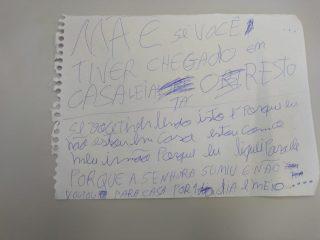 MÃE se VOCÊ ...
TIVER CHEGADO em
CASA LEIA O RESTO
TA
se voce tiver lendo isto é Porque eu
não estou em casa estou com o
meu irmão Porque eu liguei Para ele
PORQUE A SENHORA SUMIU E NÃO
VOLTOU PARA CASA POR 1 DIA E MEIO ....